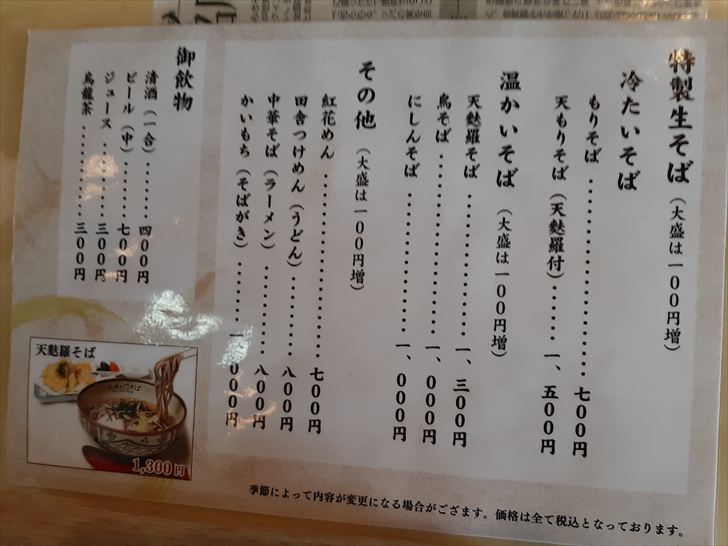 特製生そば（大盛は一〇〇円増）
冷たいそば
もりそば……………………七〇〇円
天もりそば（天麩羅付）………一、五〇〇円
温かいそば（大盛は一〇〇円増）
天麩羅そば……………………一、三〇〇円
鳥そば……………………一、〇〇〇円
にしんそば……………………一、〇〇〇円
その他（大盛は一〇〇円増）
紅花めん……………………七〇〇円
田舎つけめん（うどん）………八〇〇円
中華そば（ラーメン）…………八〇〇円
かいもち（そばがき）…………一、〇〇〇円
御飲物
清酒（一合）……四〇〇円
ビール（中）……七〇〇円
ジュース…………三〇〇円
烏龍茶……………三〇〇円
天麩羅そば
1,300円
季節によって内容が変更になる場合がござます。価格は全て税込となっております。